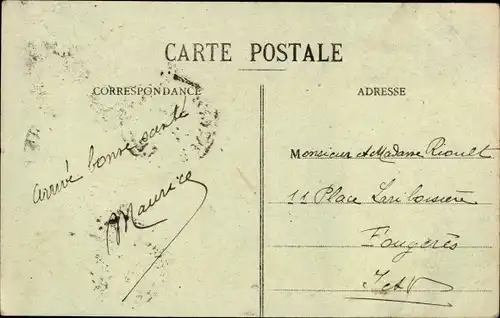 CARTE POSTALE
CORRESPONDANCE
ADRESSE
arrivé bonne santé
Maurice
Monsieur et Madame Rioult
11 Place Lariboisière
Fougerès
I et V